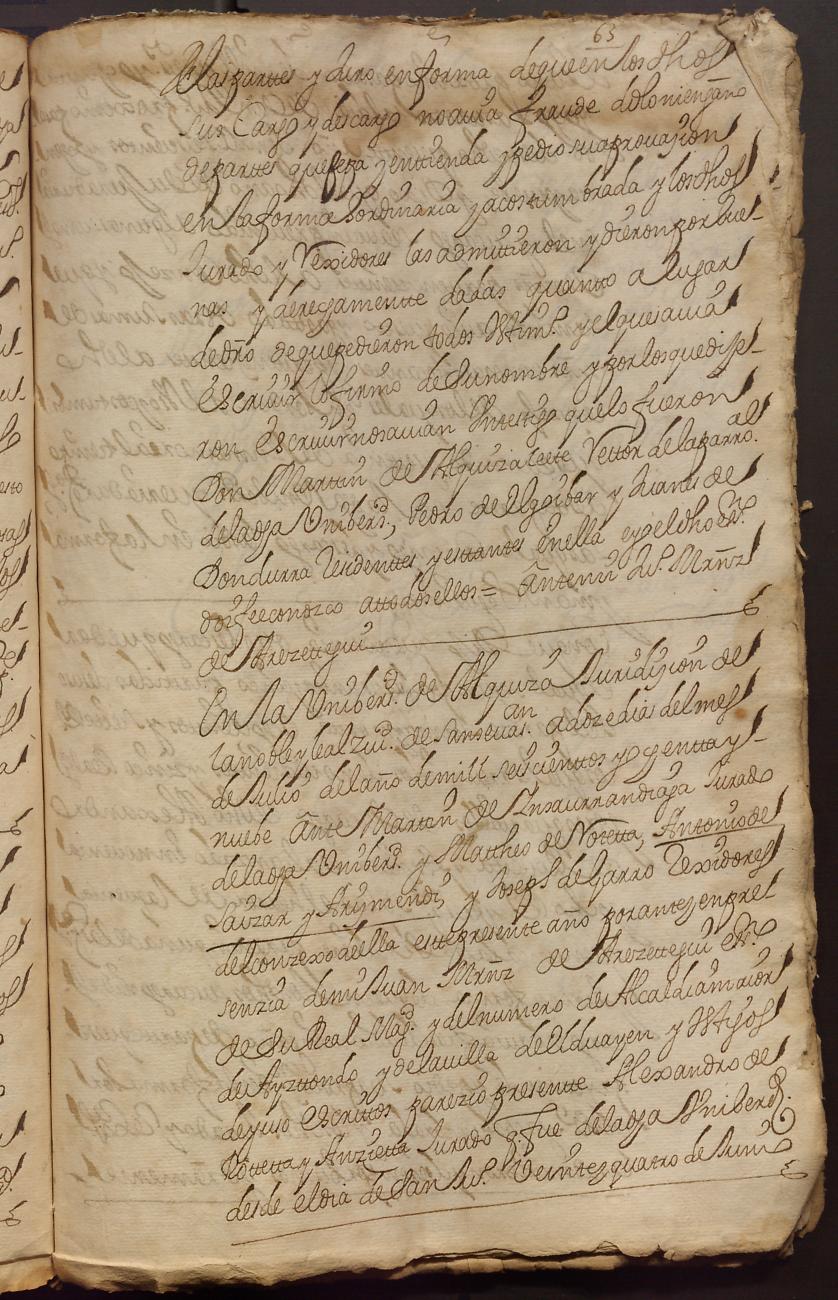 63
las parttes y Juro en forma de que en los dhos
sus Cargo y descargo no auia fraude dolo ni engaño
de parttes que sepa y enttienda y pedio su aprouazion
en la forma hordinaria y acostumbrada y los dhos
Jurado y Rexidores las admittieron y dieron por bue-
nas y derechamentte dadas quanto a lugar
de dro de que pedieron todos Ttim.º y el que sauia
escriuir lo firmo de su nombre y por los que dije-
ron escriuir no sauian Un testigo que lo fueron
Don Martin de Alquizalete Rettor de la parro.al
de la dha Unibersd., Pedro de Elgoibar y Juanes de
Dondurra Residenttes y estantes en ella e yo el dho Essno.
doy fee conozco a ttodos ellos = Antemi Jun. Mrnz
de Arezttegui
En la Unibersd. de Alquiza Juridizion de
la noble y leal ziud. de San Seuan. a doze dias del mes
de Julio del año de mill seiscienttos y ochentta y
nuebe Ante Martin de Insaurrandiaga Jurado
de la dha Unibersd. y Mattheo de Rotetta, Antonio de
Sauzar y Arizmendi, y Joseph de Garro Rexidores
del conzexo de ella este presente año por ante y en pre-
senzia de mi Juan Mrnz de Arezttegui essno.
de Su Real Magd. y del numero de Alcaldia maior
de Ayzttondo y de la uilla de Elduayen y Ttigos
de yuso escrittos parezio presentte Alexandro de
Rottetta y Anzietta Jurado q. fue de la dha Unibersd.
desde el dia de San Jun. Veinte y quatro de Junio